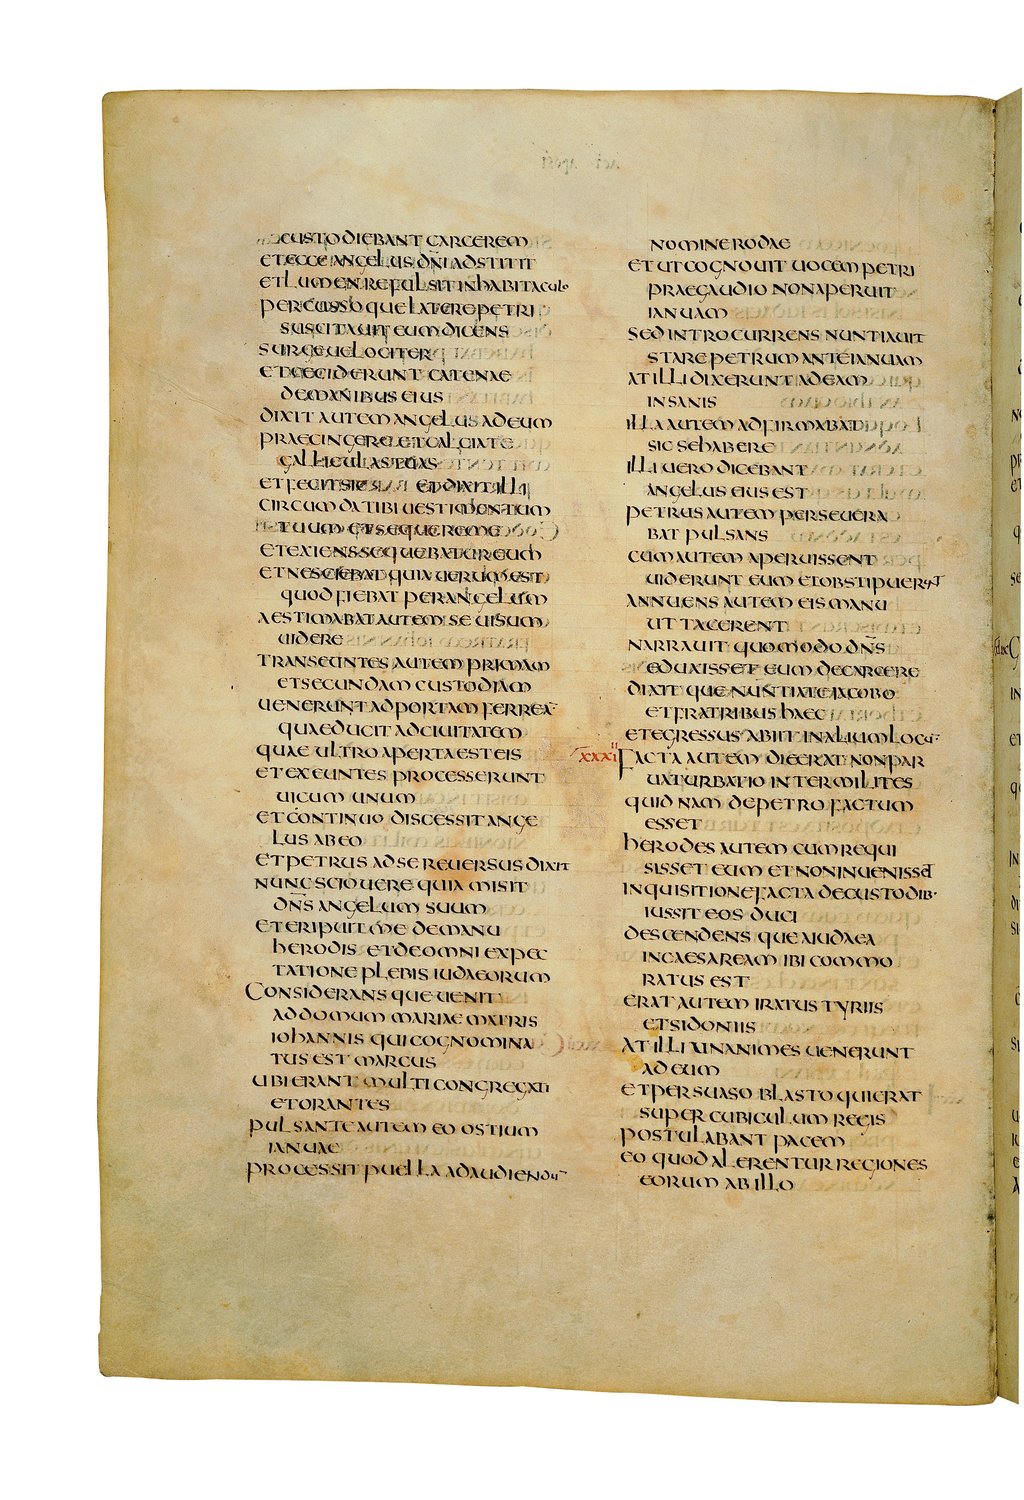 CUSTODIEBANT CARCEREM
ET ECCE ANGELUS DNI ADSTITIT
ET LUMEN REFULSIT IN HABITACULO
PERCUSSOQUE LATERE PETRI
SUSCITAUIT EUM DICENS
SURGE UELOCITER
ET CECIDERUNT CATENAE
DE MANIBUS EIUS
DIXIT AUTEM ANGELUS AD EUM
PRAECINGERE ET CALCIA TE
GALLICULAS TUAS
ET FECIT SIC ET DIXIT ILLI
CIRCUMDA TIBI UESTIMENTUM
TUUM ET SEQUERE ME
ET EXIENS SEQUEBATUR EUM
ET NESCIEBAT QUIA UERUM EST
QUOD FIEBAT PER ANGELUM
AESTIMABAT AUTEM SE UISUM
UIDERE
TRANSEUNTES AUTEM PRIMAM
ET SECUNDAM CUSTODIAM
UENERUNT AD PORTAM FERREA
QUAE DUCIT AD CIUITATEM
QUAE ULTRO APERTA EST EIS
ET EXEUNTES PROCESSERUNT
UICUM UNUM
ET CONTINUO DISCESSIT ANGE
LUS AB EO
ET PETRUS AD SE REUERSUS DIXIT
NUNC SCIO UERE QUIA MISIT
DNS ANGELUM SUUM
ET ERIPUIT ME DE MANU
HERODIS ET DE OMNI EXPEC
TATIONE PLEBIS IUDAEORUM
CONSIDERANSQUE UENIT
AD DOMUM MARIAE MATRIS
IOHANNIS QUI COGNOMINA
TUS EST MARCUS
UBI ERANT MULTI CONGREGATI
ET ORANTES
PULSANTE AUTEM EO OSTIUM
IANUAE
PROCESSIT PUELLA AD AUDIENDU
NOMINE RODAE
ET UT COGNOUIT UOCEM PETRI
PRAE GAUDIO NON APERUIT
IANUAM
SED INTRO CURRENS NUNTIAUIT
STARE PETRUM ANTE IANUAM
AT ILLI DIXERUNT AD EAM
INSANIS
ILLA AUTEM ADFIRMABAT
SIC SE HABERE
ILLI UERO DICEBANT
ANGELUS EIUS EST
PETRUS AUTEM PERSEUERA
BAT PULSANS
CUM AUTEM APERUISSENT
UIDERUNT EUM ET OBSTIPUERUNT
ANNUENS AUTEM EIS MANU
UT TACERENT
NARRAUIT QUOMODO DNS
EDUXISSET EUM DE CARCERE
DIXITQUE NUNTIATE IACOBO
ET FRATRIBUS HAEC
ET EGRESSUS ABIIT IN ALIUM LOCU
XXXII FACTA AUTEM DIE ERAT NON PAR
UA TURBATIO INTER MILITES
QUIDNAM DE PETRO FACTUM
ESSET
HERODES AUTEM CUM REQUI
SISSET EUM ET NON INUENISSET
INQUISITIONE FACTA DE CUSTODIB·
IUSSIT EOS DUCI
DESCENDENSQUE A IUDAEA
IN CAESAREAM IBI COMMO
RATUS EST
ERAT AUTEM IRATUS TYRIIS
ET SIDONIIS
AT ILLI UNANIMES UENERUNT
AD EUM
ET PERSUASO BLASTO QUI ERAT
SUPER CUBICULUM REGIS
POSTULABANT PACEM
EO QUOD ALERENTUR REGIONES
EORUM AB ILLO